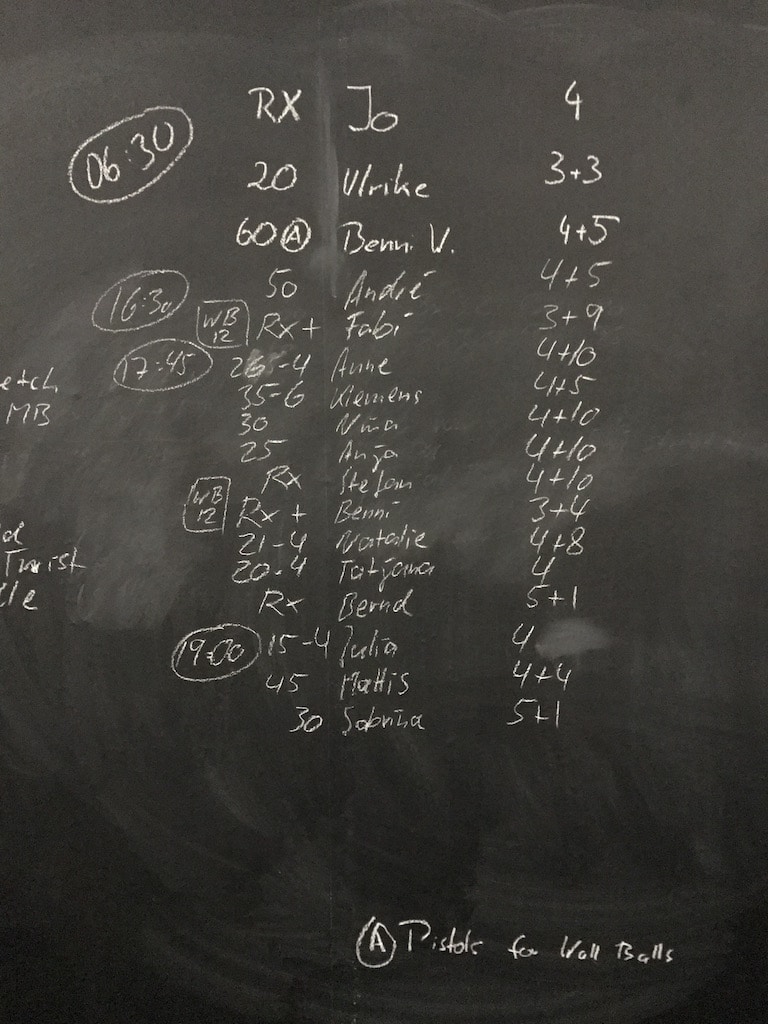 RX Jo 4
06:30
20 Ulrike 3+3
60 Ⓐ Benni V. 4+5
50 André 4+5
16:30
WB 12 Rx + Fabi 3+9
17:45 -4 Anne 4+10
etch
35-6 Klemens 4+5
MB
30 Nina 4+10
25 Anja 4+10
Rx Stefan 4+10
WB 12 Rx + Benni 3+4
21-4 Natalie 4+8
Twist
20-4 Tatjana 4
Rx Bernd 5+1
19:00 15-4 Julia 4
45 Mattis 4+4
30 Sabrina 5+1
Ⓐ Pistols for Wall Balls